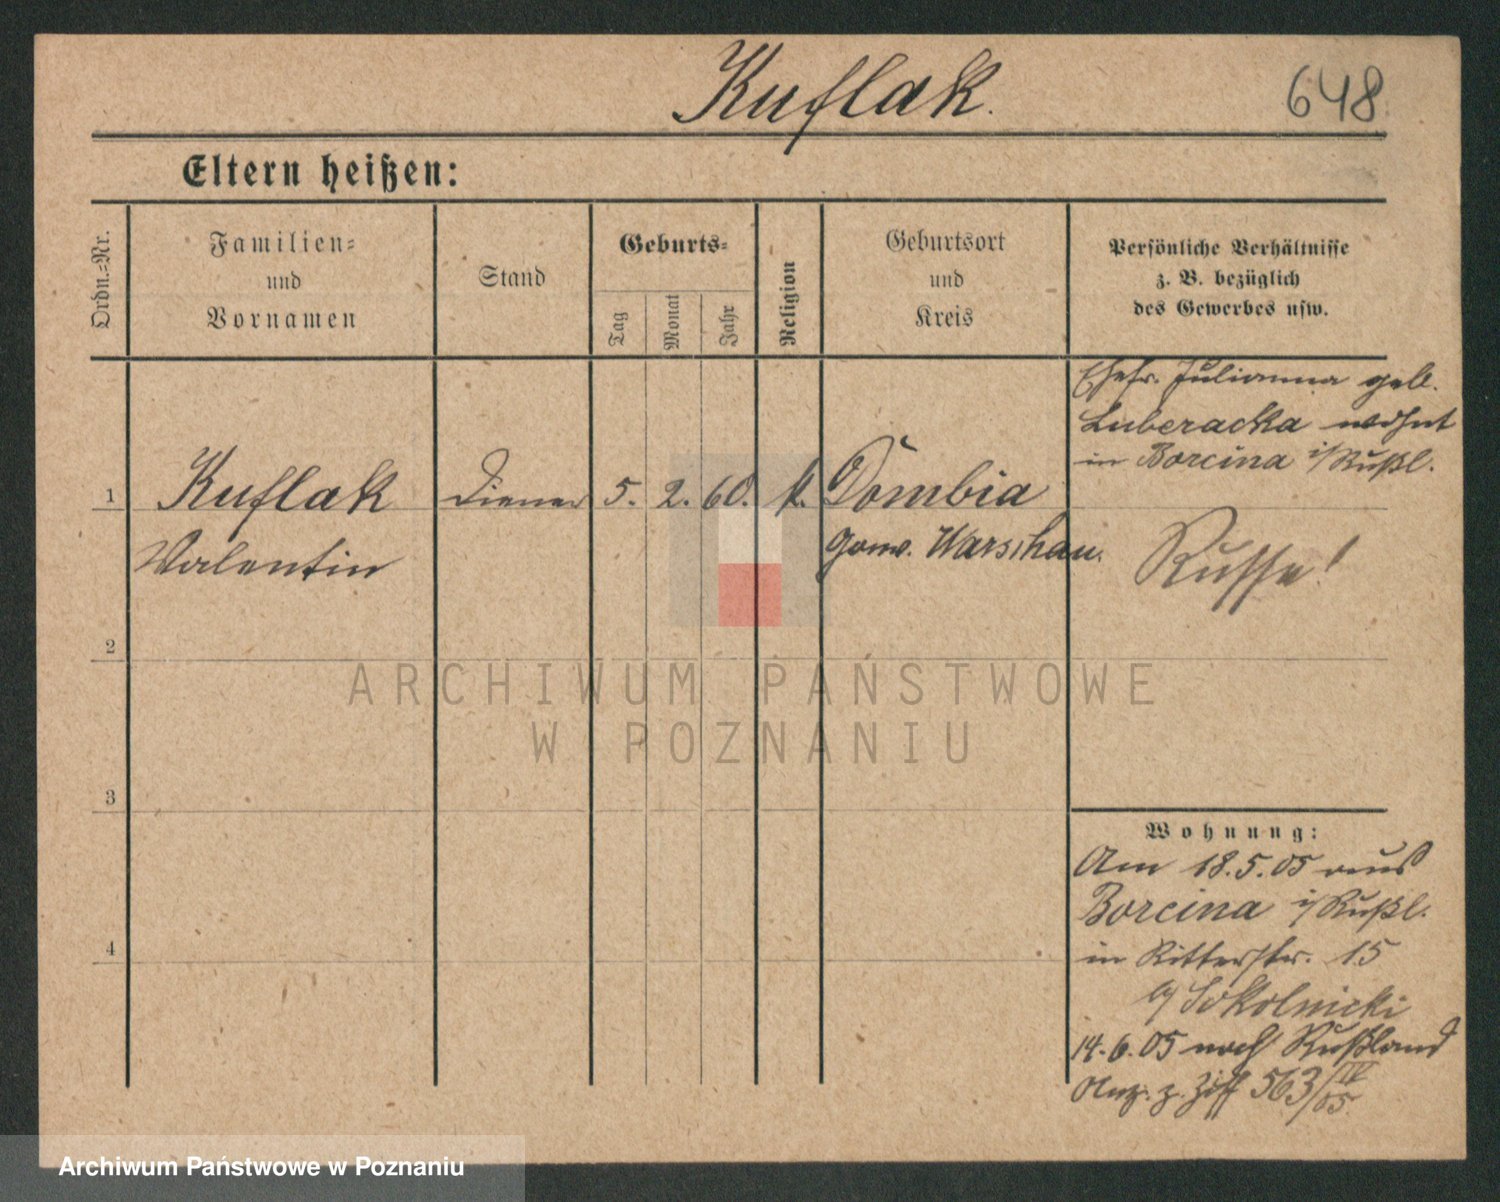 Kuflak.
648
Eltern heißen:
Ordn.=Nr.
Familien=
und
Vornamen
Stand
Geburts=
Tag
Monat
Jahr
Religion
Geburtsort
und
Kreis
Persönliche Verhältnisse
z. B. bezüglich
des Gewerbes usw.
Ehefr. Julianna geb.
Luberacka wohnt
in Borcina i/Rußl.
1
Kuflak
Diener
5.
2.
60.
k.
Dombia
Valentin
Gouv. Warschau.
Russe!
2
3
4
Wohnung:
Am 18.5.05 aus
Borcina i/Rußl.
in Ritterstr. 15
b/ Sokolnicki
14.6.05 nach Rußland
Anz. z. Ziff 563/IV 05.
ARCHIWUM PAŃSTWOWE
W POZNANIU
Archiwum Państwowe w Poznaniu